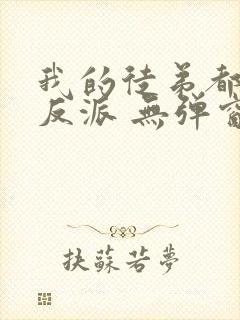 我的徒弟都
反派 無弹窗
扶蘇若夢